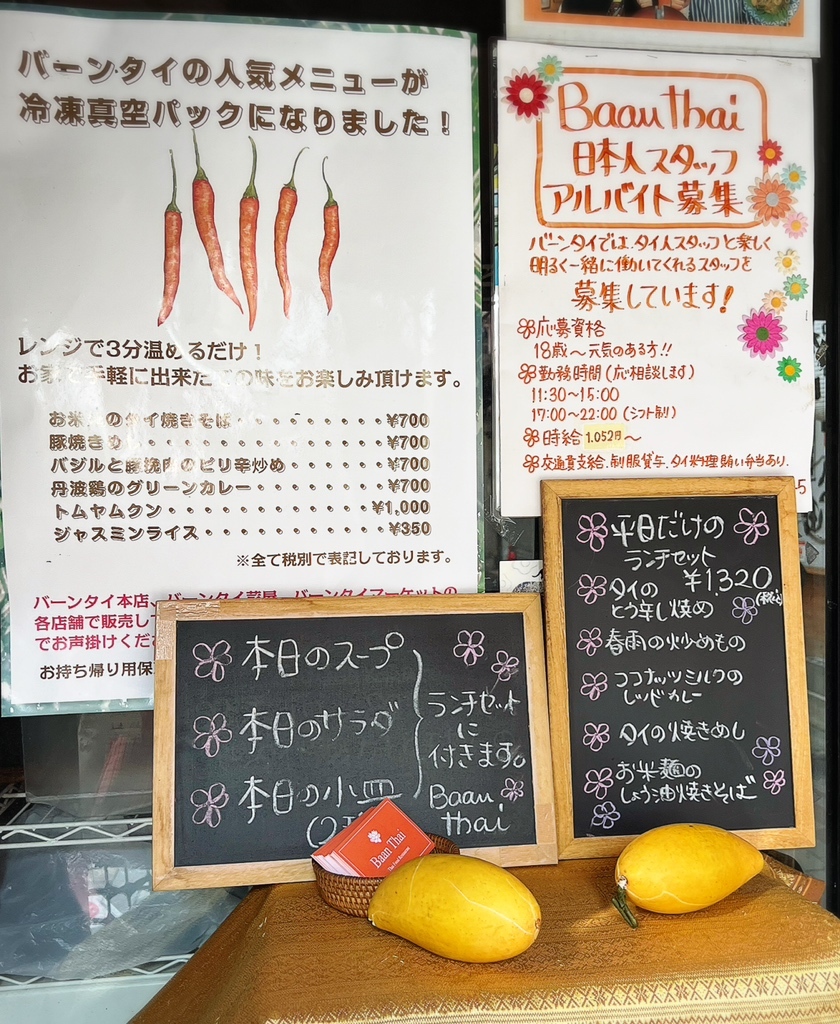 バーンタイの人気メニューが
冷凍真空パックになりました！
レンジで3分温めるだけ！
お家で手軽に出来たての味をお楽しみ頂けます。
お米麺のタイ焼きそば・・・・・・・・・・¥700
豚焼きめし・・・・・・・・・・・・・・・¥700
バジルと豚挽肉のピリ辛炒め・・・・・・・¥700
丹波鶏のグリーンカレー・・・・・・・・・¥700
トムヤムクン・・・・・・・・・・・・・¥1,000
ジャスミンライス・・・・・・・・・・・・¥350
※全て税別で表記しております。
バーンタイ本店、バーンタイ菜屋、バーンタイマーケットの
各店舗で販売して
でお声掛けくだ
お持ち帰り用保
Baan thai
日本人スタッフ
アルバイト募集
バーンタイでは、タイ人スタッフと楽しく
明るく一緒に働いてくれるスタッフを
募集しています!
応募資格
18歳〜元気のある方!!
勤務時間(応相談します)
11:30〜15:00
17:00〜22:00(シフト制)
時給 1.052円〜
交通費支給、制服貸与、タイ料理賄い弁当あり.
本日のスープ
本日のサラダ
本日の小皿
ランチセット
に
付きます。
Baan
thai
平日だけの
ランチセット
¥1,320
(税込)
タイの
とう辛し焼め
春雨の炒めもの
ココナッツミルクの
レッドカレー
タイの焼きめし
お米麺の
しょう油焼きそば
Baan Thai